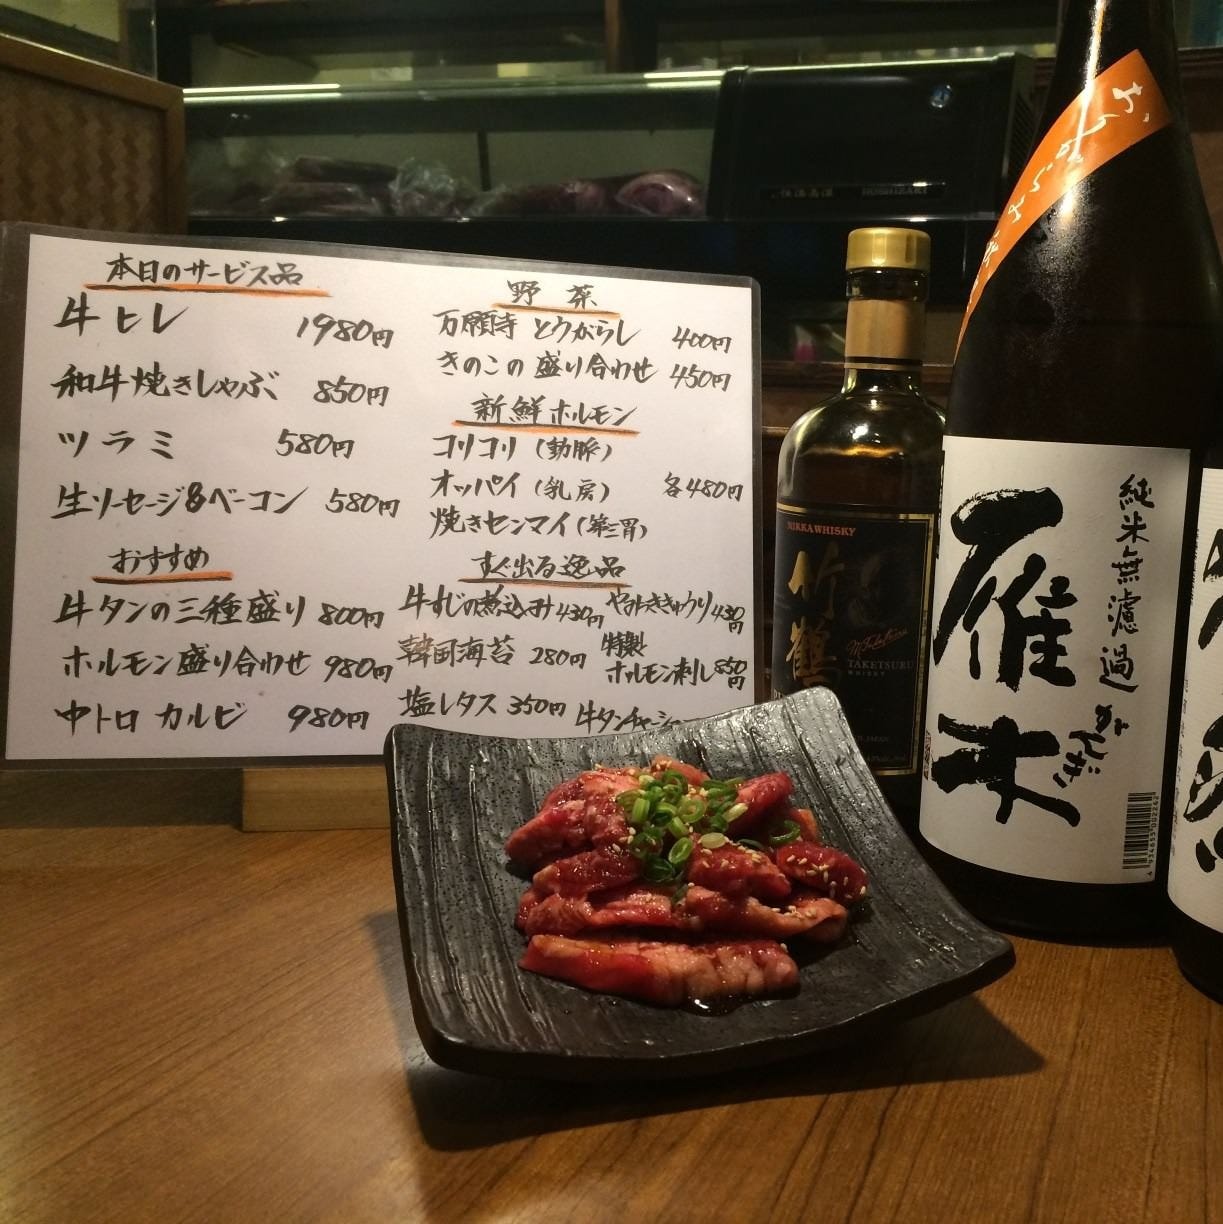 本日のサービス品
牛ヒレ 1980円
和牛焼きしゃぶ 850円
ツラミ 580円
生ソーセージ&ベーコン 580円
おすすめ
牛タンの三種盛り 800円
ホルモン盛り合わせ 980円
中トロカルビ 980円
野菜
万願寺とうがらし 400円
きのこの盛り合わせ 450円
新鮮ホルモン
コリコリ(動脈)
オッパイ(乳房) 各480円
焼きセンマイ(第三胃)
すぐ出る逸品
牛すじの煮込み 430円
やみつききゅうり 430円
韓国海苔 280円
特製
ホルモン刺し 850円
塩レタス 350円
牛タンチャーシュー
HOSHIZAKI
NIKKA WHISKY
竹鶴
TAKETSURU
WHISKY
純米無濾過
雁木
がんぎ
4 934655 002262